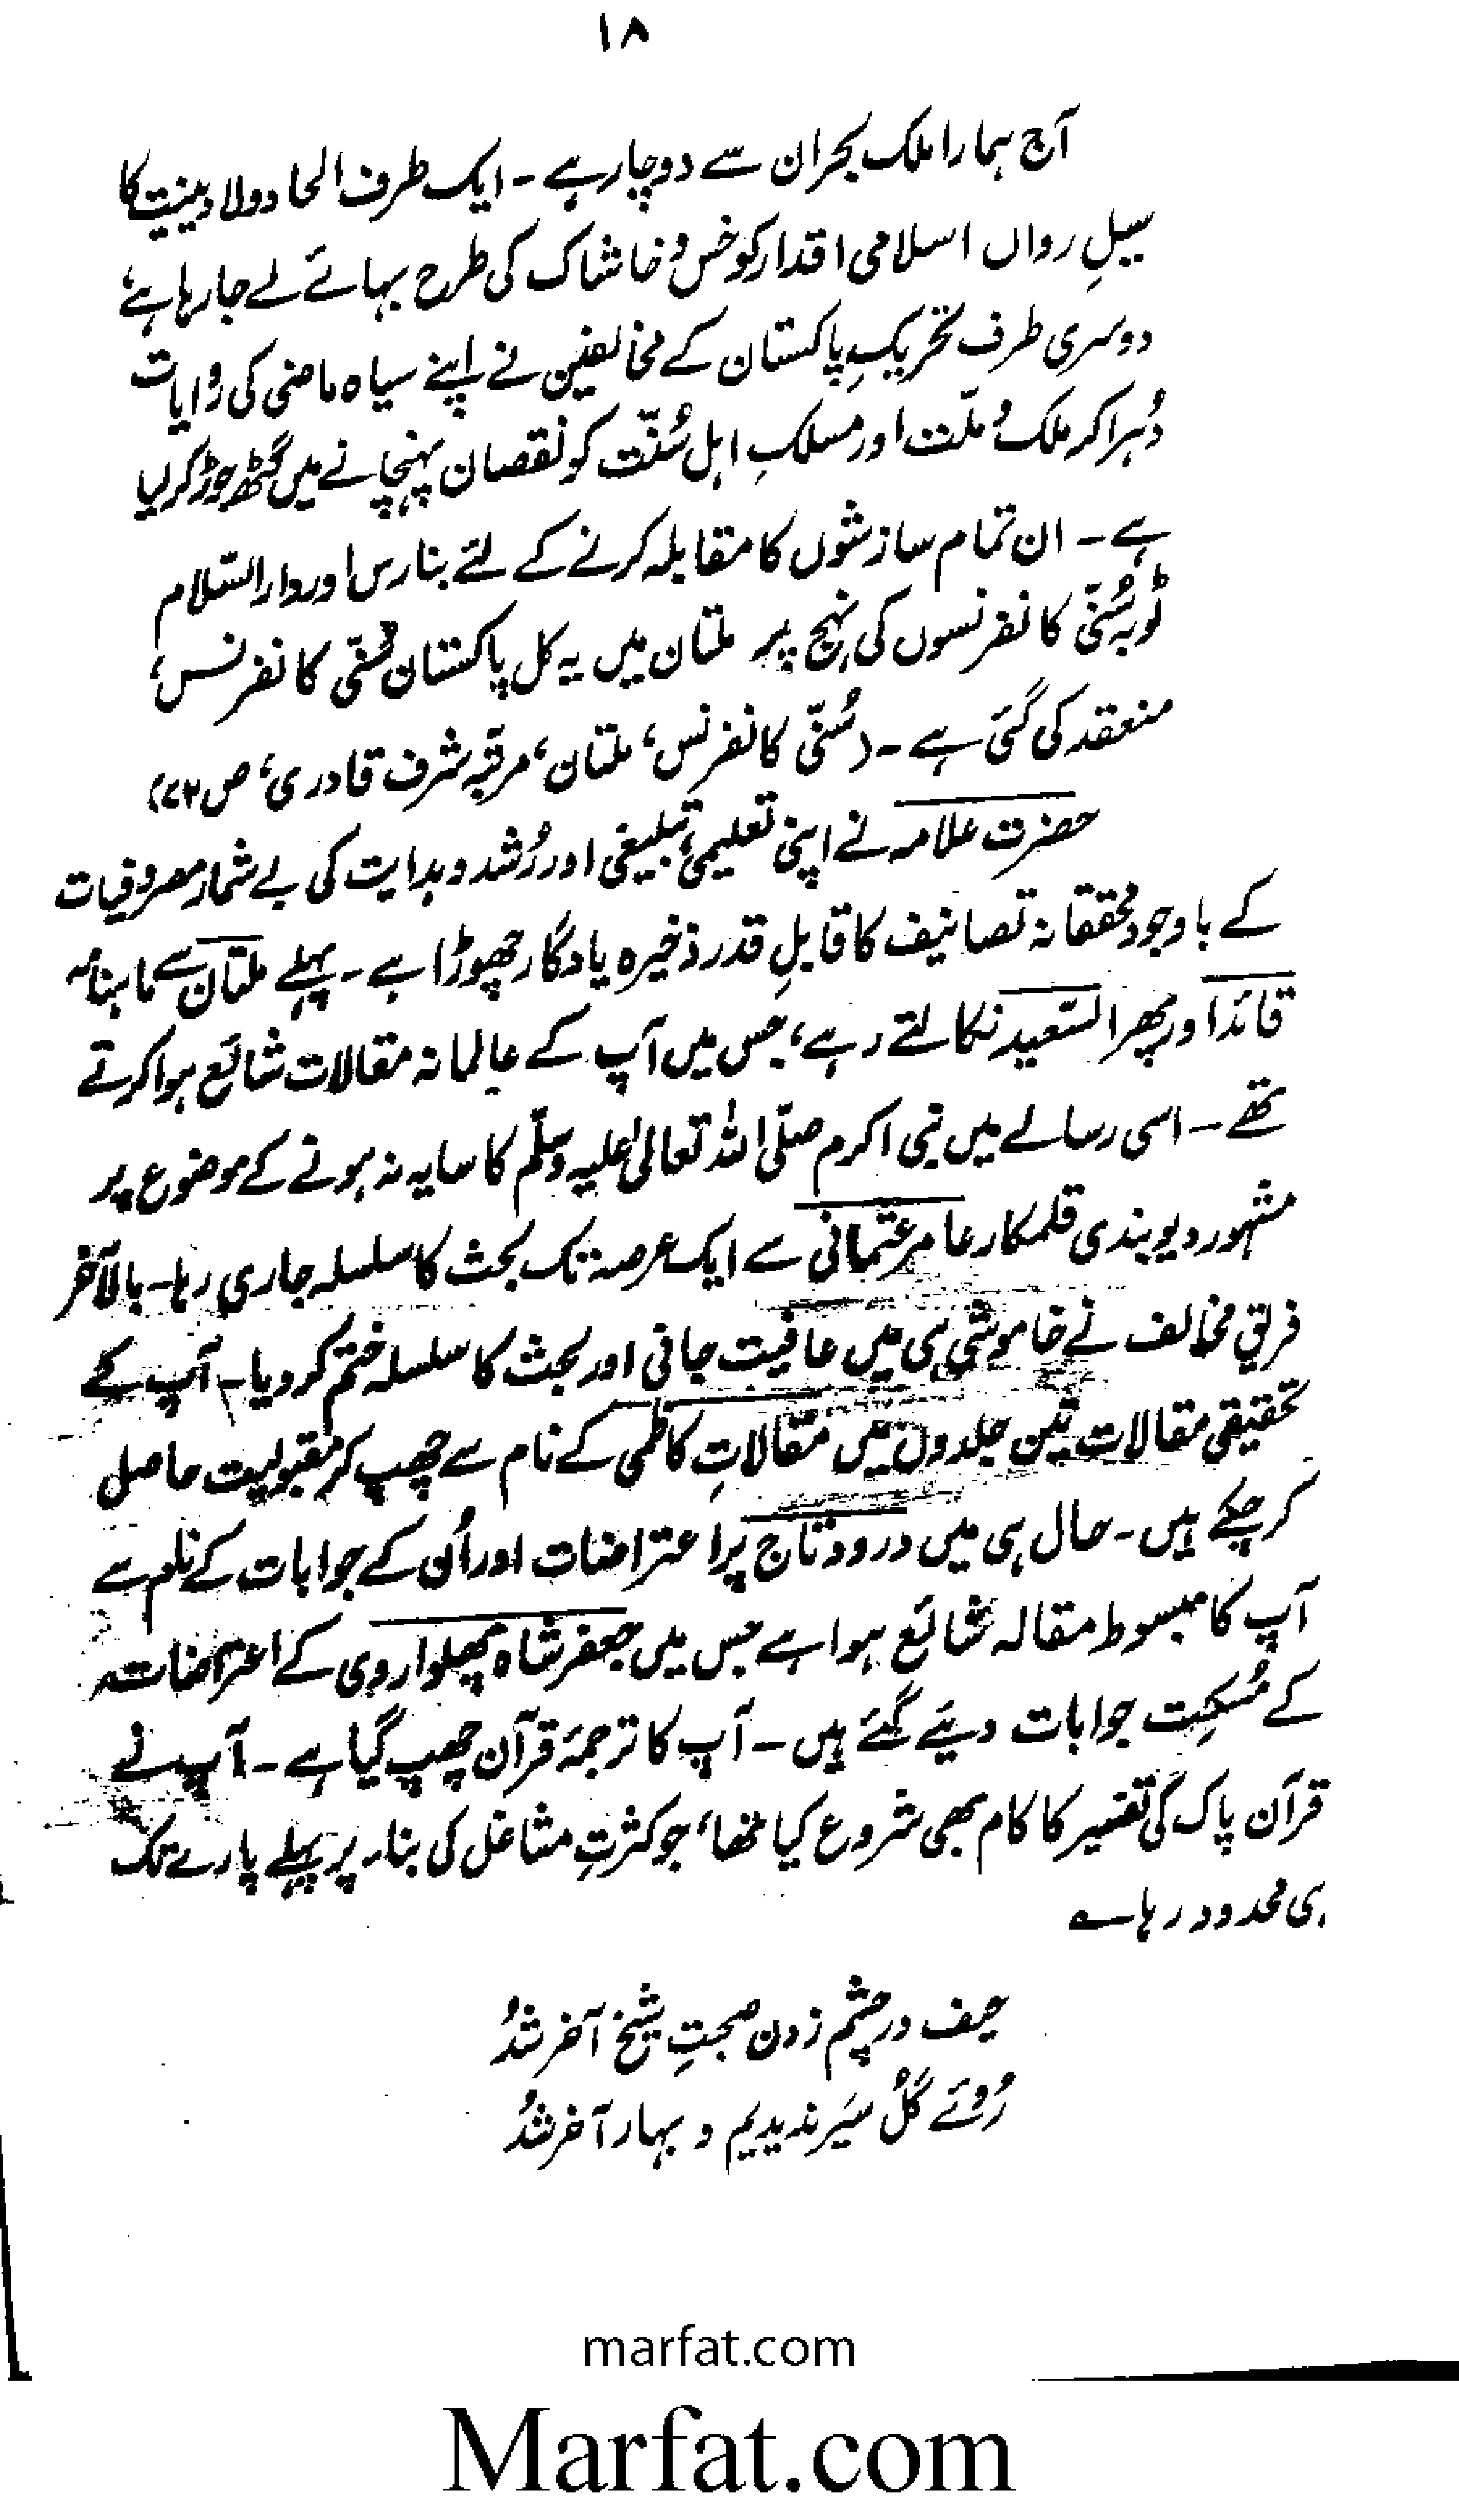 ۱۸
آج ہمارا ملک بحران سے دوچار ہے ۔ ایک طرف الحاد و لادینیت کا
سیلِ رواں اسلامی اقدار کو خس و خاشاک کی طرح بہائے لے جا رہا ہے،
دوسری طرف تحریکِ پاکستان کے مخالفین نے اپنے سیاہ ماضی کی روایات
دُہرا کر ملک و ملّت اور مسلکِ اہل سُنّت کو نقصان پہنچانے میں گٹھ جوڑ کر لیا
ہے ۔ ان تمام سازشوں کا مقابلہ کرنے کے لئے بنارس اور دار السّلام
ٹوبہ سُنّی کانفرنسوں کی نہج پر ملتان میں یہ کل پاکستان سُنّی کانفرنس،
منعقد کی گئی ہے ۔ (سُنّی کانفرنس، ملتان، مرتبہ شرف قادری، ص ۷۳)
حضرت علامہ نے اپنی تعلیمی، تبلیغی اور رُشد و ہدایت کی بے شمار مصروفیات
کے باوجود محققانہ تصانیف کا قابلِ قدر ذخیرہ یادگار چھوڑا ہے ۔ پہلے ملتان سے ماہنامہ
قائد اور پھر السّعید نکالتے رہے، جس میں آپ کے عالمانہ مقالات شائع ہوا کرتے
تھے ۔ اسی رسالے میں نبی اکرم صلّی اللہ تعالیٰ علیہ وسلّم کا سایہ نہ ہونے کے موضوع پر
مشہور دیوبندی قلمکار عامر عثمانی سے ایک عرصہ تک بحث کا سلسلہ جاری رہا ۔ بالآخر
فریقِ مخالف نے خاموشی ہی میں عافیت جانی اور بحث کا سلسلہ ختم کر دیا ۔ آپ کے
تحقیقی مقالات تین جلدوں میں مقالاتِ کاظمی کے نام سے چھپ کر مقبولیت حاصل
کر چکے ہیں ۔ حال ہی میں درود تاج پر اعتراضات اور اُن کے جوابات کے نام سے
آپ کا مبسوط مقالہ شائع ہوا ہے جس میں جعفر شاہ پھلواروی کے اعتراضات
کے مُسکِت جوابات دیئے گئے ہیں ۔ آپ کا ترجمۂ قرآن چھپ گیا ہے ۔ آپ نے
قرآن پاک کی تفسیر کا کام بھی شروع کیا تھا، جو کثرتِ مشاغل کی بنار پر پہلے پارے تک
ہی محدود رہا ؎
حیف در چشم زدن صحبتِ شیخ آخر شُد
رُوئے گُل سَیر ندیدیم و بہار آخر شُد
marfat.com
Marfat.com